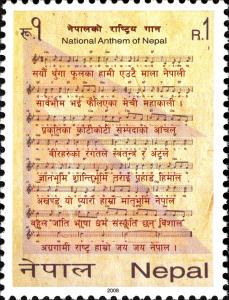 रू.१ R.1
नेपालको राष्ट्रिय गान
National Anthem of Nepal
सयौं थुंगा फूलका हामी एउटै माला नेपाली
सार्वभौम भई फैलिएका मेची महाकाली ।
प्रकृतिका कोटीकोटी सम्पदाको आँचल
वीरहरूका रगतले स्वतन्त्र र अटल
ज्ञानभूमि शान्तिभूमि तराई पहाड हिमाल
अखण्ड यो प्यारो हाम्रो मातृभूमि नेपाल
बहुल जाति भाषा धर्म संस्कृति छन् विशाल
अग्रगामी राष्ट्र हाम्रो जय जय नेपाल ।
नेपाल Nepal
2008